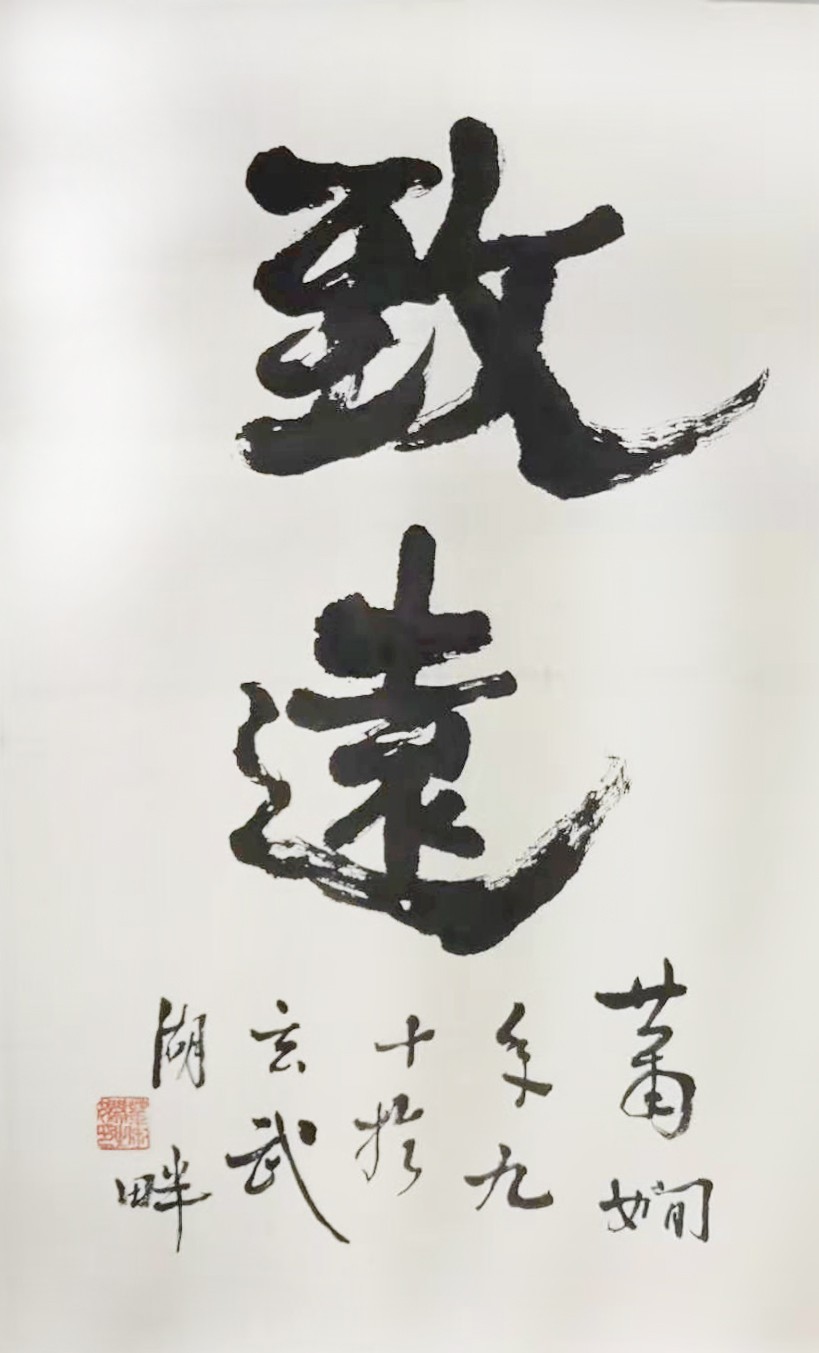 致
遠
萧娴
年九
十於
玄武
湖畔